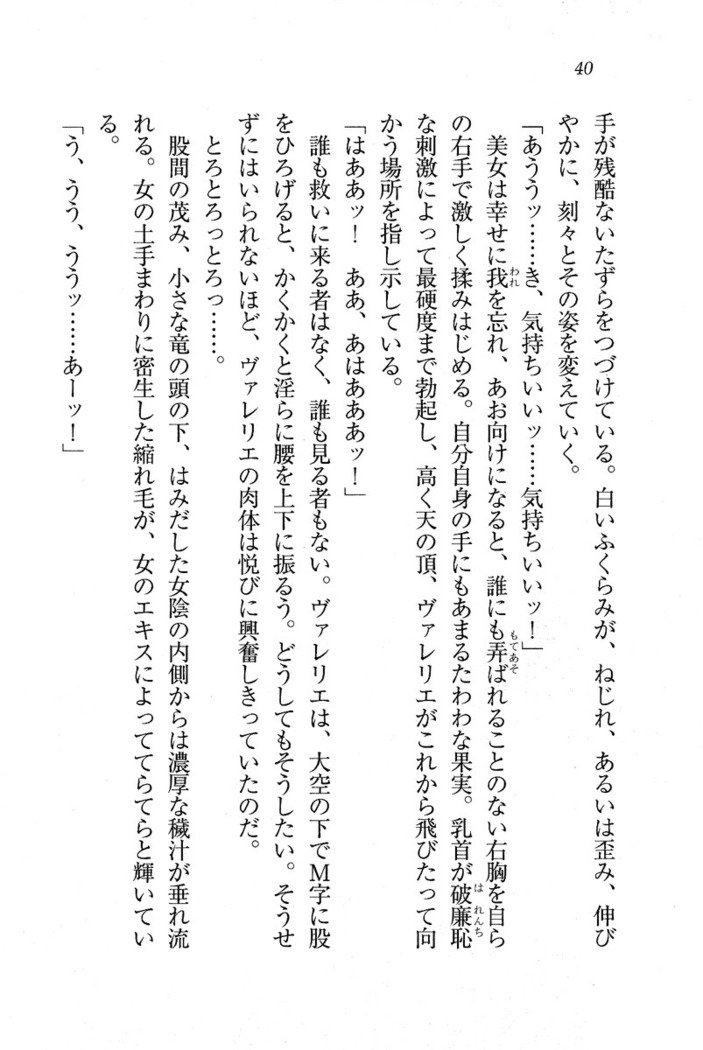 40
手が残酷ないたずらをつづけている。白いふくらみが、ねじれ、あるいは歪み、伸び
やかに、刻々とその姿を変えていく。
「あううッ……き、気持ちいいッ……気持ちいいッ！」
美女は幸せに我を忘れ、あお向けになると、誰にも弄ばれることのない右胸を自ら
の右手で激しく揉みはじめる。自分自身の手にもあまるたわわな果実。乳首が破廉恥
な刺激によって最硬度まで勃起し、高く天の頂、ヴァレリエがこれから飛びたって向
かう場所を指し示している。
「はああッ！　ああ、あはあああッ！」
誰も救いに来る者はなく、誰も見る者もない。ヴァレリエは、大空の下でＭ字に股
をひろげると、かくかくと淫らに腰を上下に振るう。どうしてもそうしたい。そうせ
ずにはいられないほど、ヴァレリエの肉体は悦びに興奮しきっていたのだ。
とろとろっとろっ……。
股間の茂み、小さな竜の頭の下、はみだした女陰の内側からは濃厚な穢汁が垂れ流
れる。女の土手まわりに密生した縮れ毛が、女のエキスによっててらてらと輝いてい
る。
「う、うう、ううッ……あーッ！」